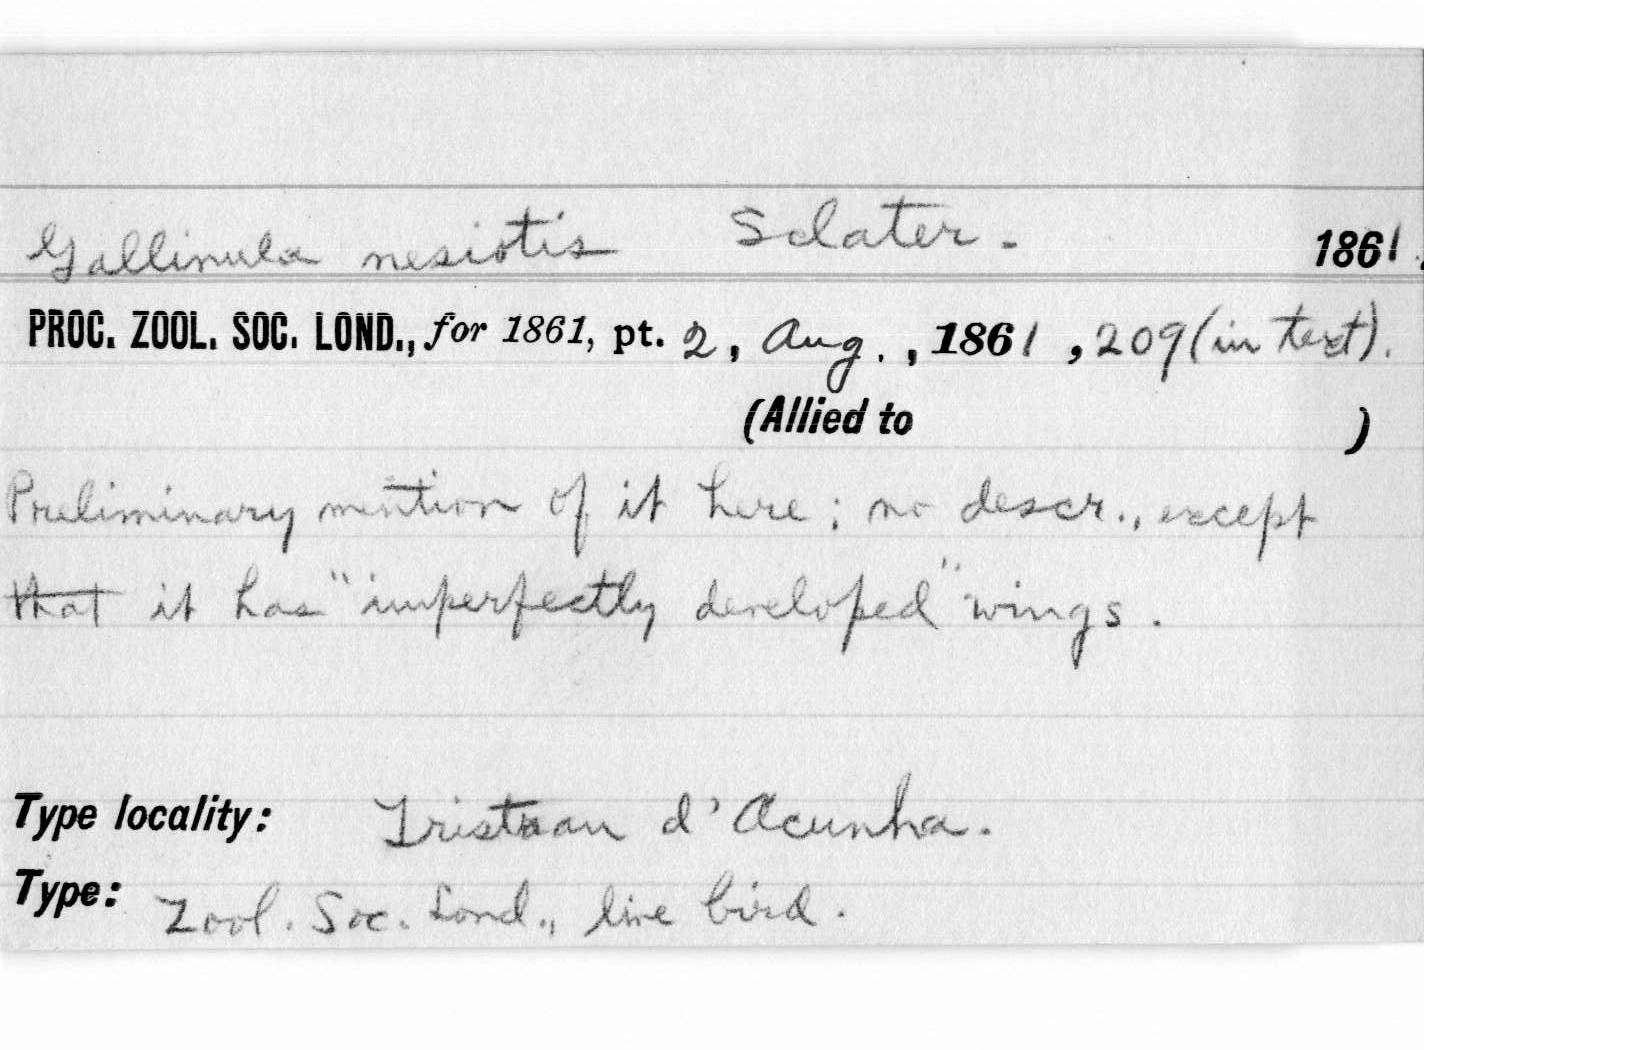 Gallinula nesiotis Sclater. 1861.
PROC. ZOOL. SOC. LOND., for 1861, pt. 2, Aug., 1861, 209 (in text).
(Allied to )
Preliminary mention of it here; no descr., except
that it has "imperfectly developed" wings.
Type locality: Tristran d'Acunha.
Type: Zool. Soc. Lond., live bird.